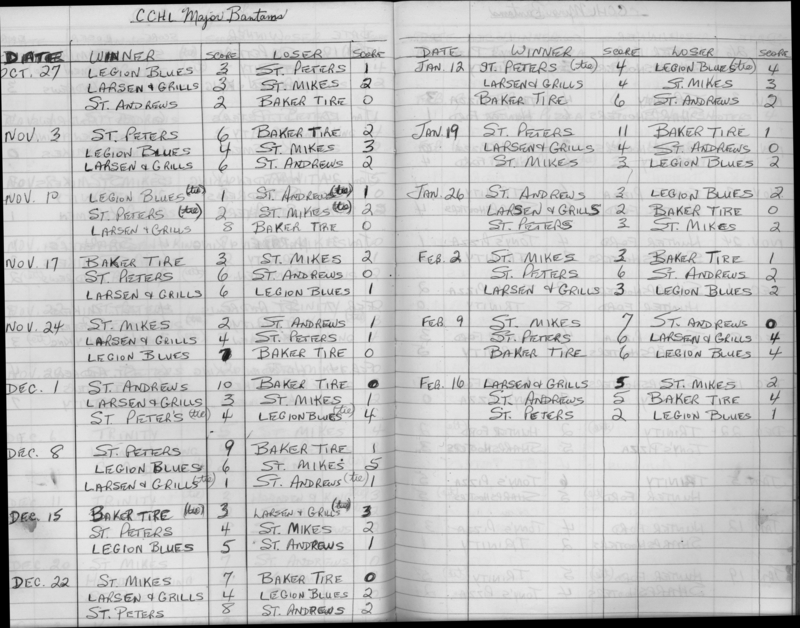 CCHL "Major" Bantams
DATE WINNER SCORE LOSER SCORE
OCT. 27 LEGION BLUES 3 ST. PETERS 1
LARSEN & GRILLS 3 ST. MIKES 2
ST. ANDREWS 2 BAKER TIRE 0
NOV. 3 ST. PETERS 6 BAKER TIRE 2
LEGION BLUES 4 ST. MIKES 3
LARSEN & GRILLS 6 ST. ANDREWS 2
NOV. 10 LEGION BLUES (tie) 1 ST. ANDREWS (tie) 1
ST. PETERS (tie) 2 ST. MIKES (tie) 2
LARSEN & GRILLS 8 BAKER TIRE 0
NOV. 17 BAKER TIRE 3 ST. MIKES 2
ST. PETERS 6 ST. ANDREWS 0
LARSEN & GRILLS 6 LEGION BLUES 1
NOV. 24 ST. MIKES 2 ST. ANDREWS 1
LARSEN & GRILLS 4 ST. PETERS 1
LEGION BLUES 7 BAKER TIRE 0
DEC. 1 ST. ANDREWS 10 BAKER TIRE 0
LARSEN & GRILLS 3 ST. MIKES 1
ST. PETER'S (tie) 4 LEGION BLUES (tie) 4
DEC. 8 ST. PETERS 9 BAKER TIRE 1
LEGION BLUES 6 ST. MIKES 5
LARSEN & GRILLS (tie) 1 ST. ANDREWS (tie) 1
DEC. 15 BAKER TIRE (tie) 3 LARSEN & GRILLS (tie) 3
ST. PETERS 4 ST. MIKES 2
LEGION BLUES 5 ST. ANDREWS 1
DEC. 22 ST. MIKES 7 BAKER TIRE 0
LARSEN & GRILLS 4 LEGION BLUES 2
ST. PETERS 8 ST. ANDREWS 2
DATE WINNER SCORE LOSER SCORE
JAN. 12 ST. PETERS (tie) 4 LEGION BLUES (tie) 4
LARSEN & GRILLS 4 ST. MIKES 3
BAKER TIRE 6 ST. ANDREWS 2
JAN. 19 ST. PETERS 11 BAKER TIRE 1
LARSEN & GRILLS 4 ST. ANDREWS 0
ST. MIKES 3 LEGION BLUES 2
JAN. 26 ST. ANDREWS 3 LEGION BLUES 2
LARSEN & GRILLS 2 BAKER TIRE 0
ST. PETERS 3 ST. MIKES 2
FEB. 2 ST. MIKES 3 BAKER TIRE 1
ST. PETERS 6 ST. ANDREWS 2
LARSEN & GRILLS 3 LEGION BLUES 2
FEB. 9 ST. MIKES 7 ST. ANDREWS 0
ST. PETERS 6 LARSEN & GRILLS 4
BAKER TIRE 6 LEGION BLUES 4
FEB. 16 LARSEN & GRILLS 5 ST. MIKES 2
ST. ANDREWS 5 BAKER TIRE 4
ST. PETERS 2 LEGION BLUES 1